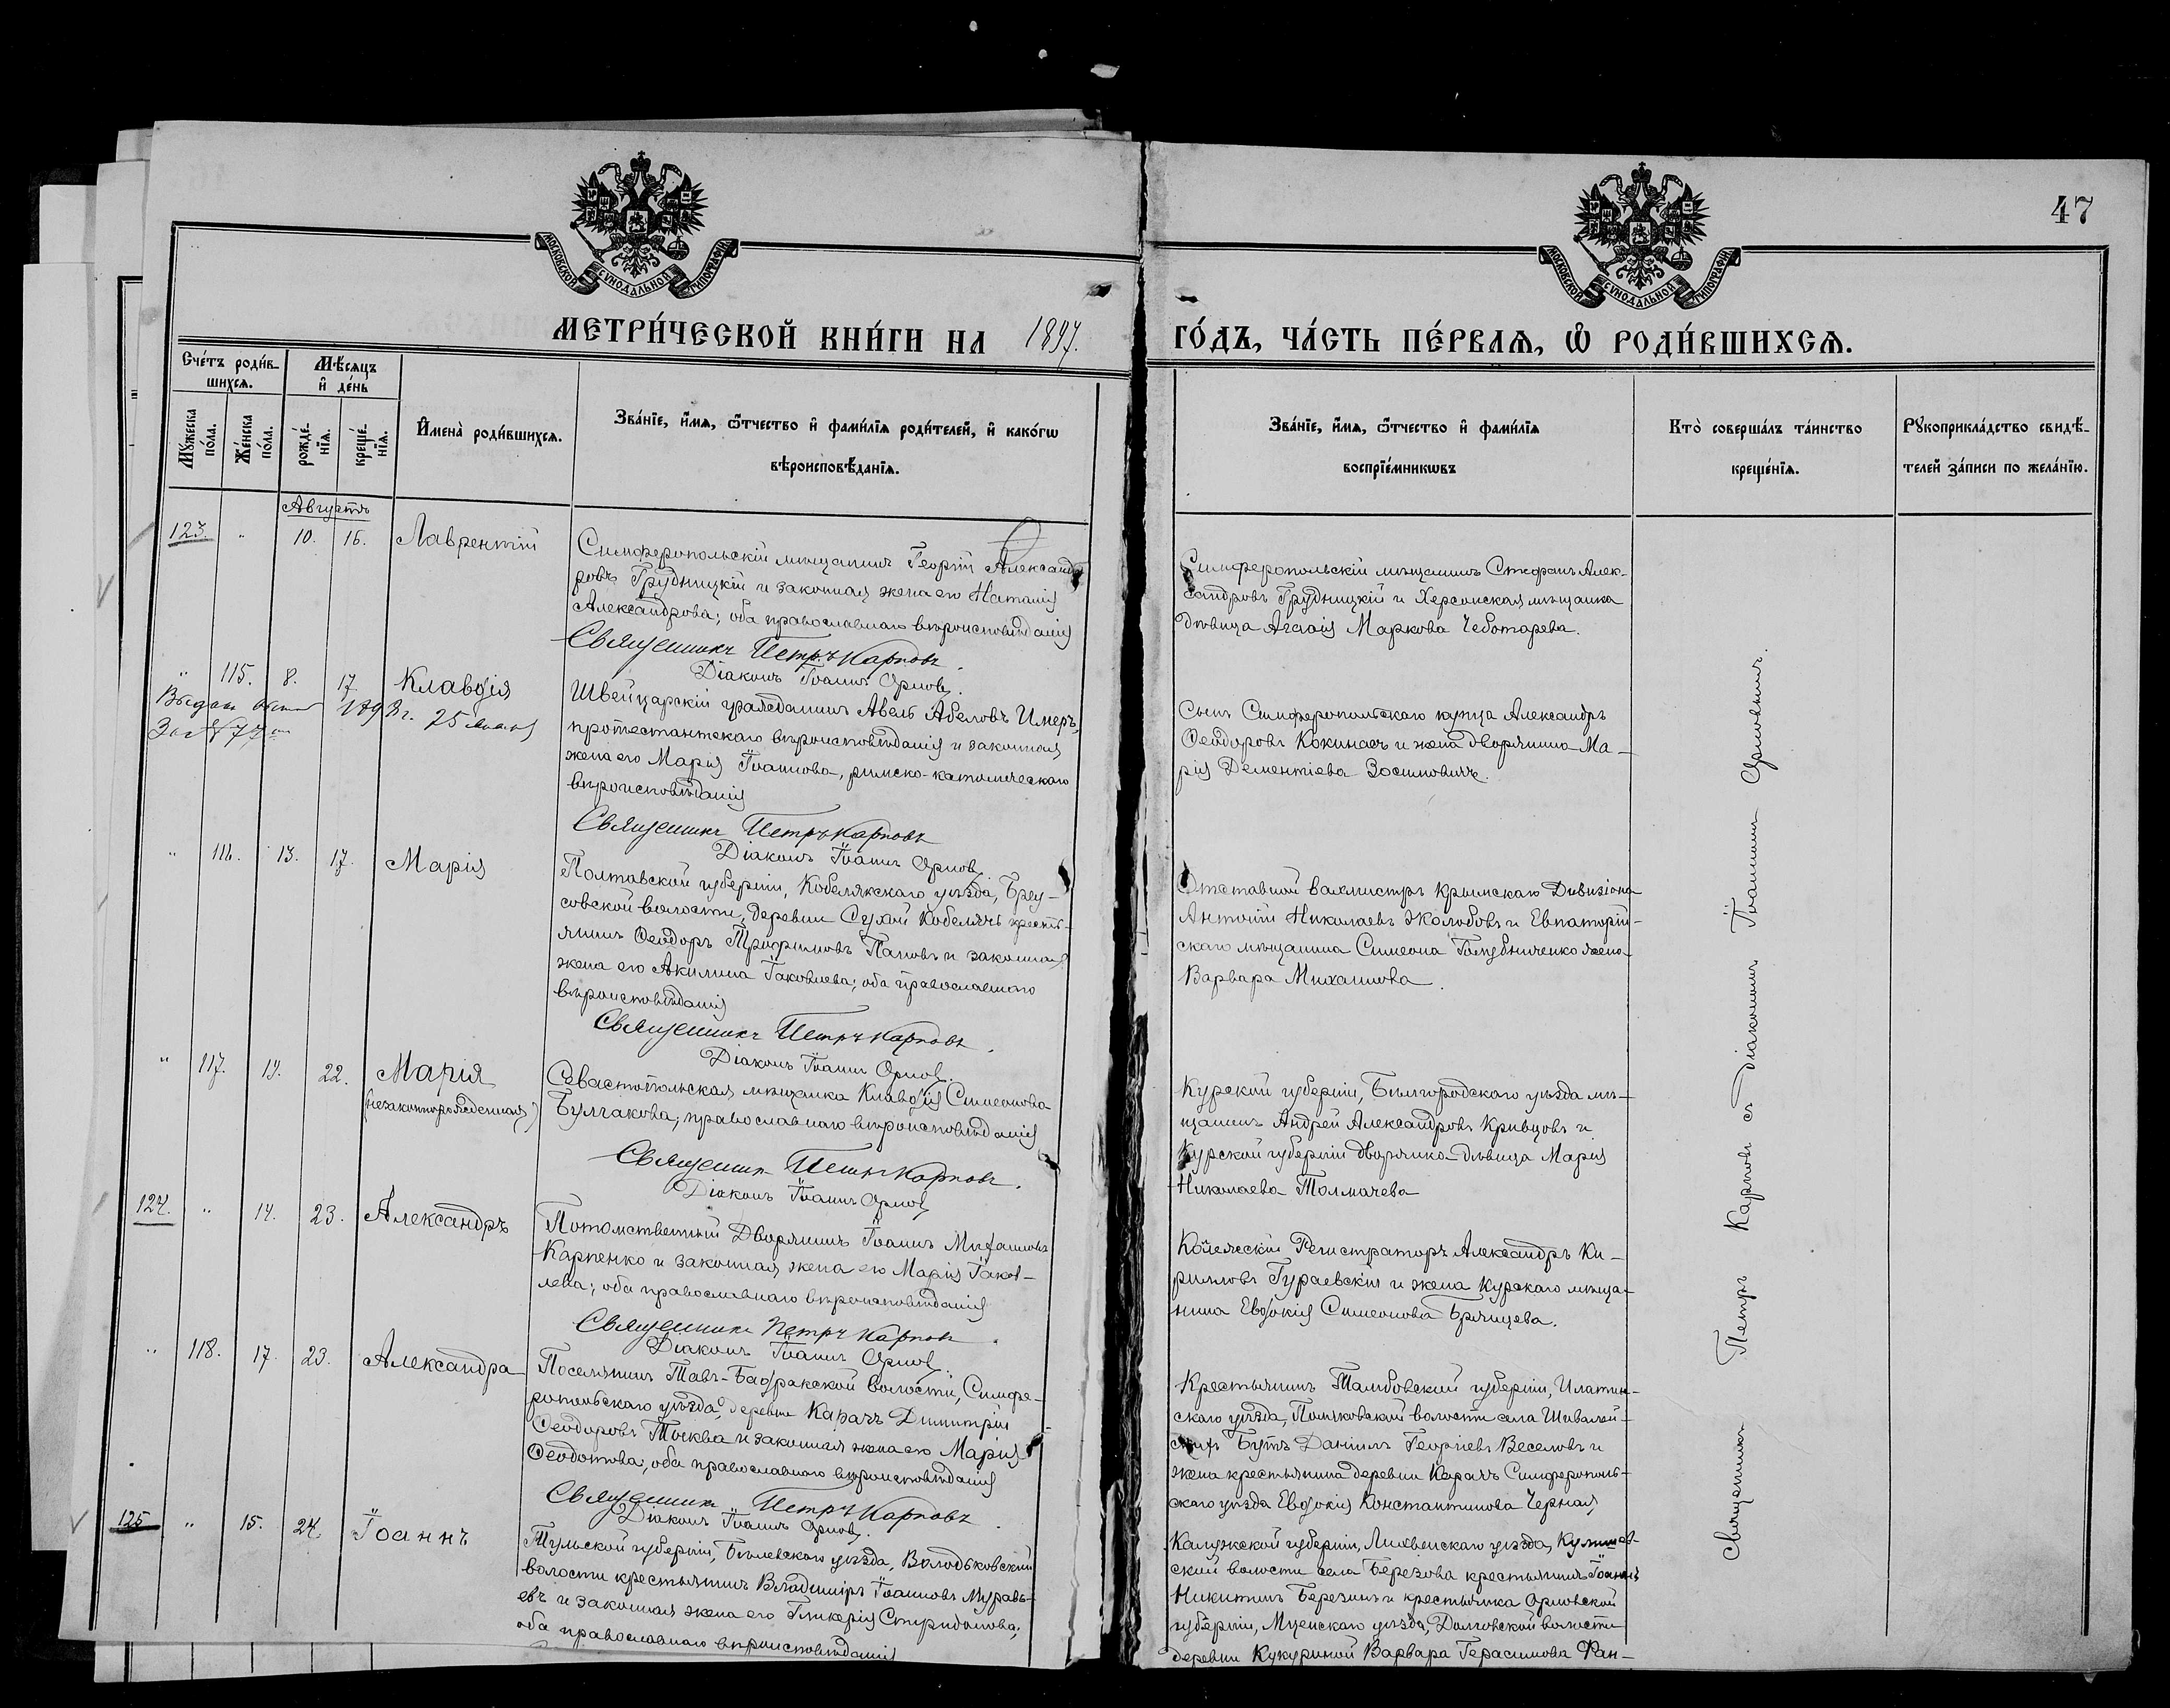 47
МОСКОВСКОЙ СѴНОДАЛЬНОЙ ТИПОГРАФІИ
МОСКОВСКОЙ СѴНОДАЛЬНОЙ ТИПОГРАФІИ
МЕТРИ́ЧЕСКОЙ КНИ́ГИ НА 1897.
ГО́ДЪ, ЧА́СТЬ ПЕ́РВАЯ, Ѿ РОДИ́ВШИХСЯ.
Сче́тъ роди́в-
шихся.
Мѣ́сяцъ
и҆ де́нь
Мꙋ́жеска
по́ла.
Же́нска
по́ла.
рожде́-
нїя.
креще́-
нїя.
И҆мена̀ роди́вшихся.
Зва́нїе, и҆́мя, ѻ҆́тчество и҆ фами́лїя роди́телей, и҆ како́гѡ
вѣроисповѣ́данїя.
Зва́нїе, и҆́мя, ѻ҆́тчество и҆ фами́лїя
воспрїе́мникѡвъ
Кто̀ соверша́лъ та́инство
креще́нїя.
Рꙋкоприкла́дство свидѣ́-
телей за́писи по жела́нїю.
Августъ
123. " 10. 16. Лаврентій
Симферопольскій мѣщанинъ Георгій Александ-
ровъ Грудницкій и законная жена его Наталія
Александрова; оба православнаго вѣроисповѣданія
Священникъ Петръ Карповъ.
Діаконъ Іоаннъ Орловъ.
Симферопольскій мѣщанинъ Стефанъ Алек-
сандровъ Грудницкій и Херсонская мѣщанка
дѣвица Аглаія Маркова Чеботарева.
" 115. 8. 17. Клавдія
1898 г. 25
Швейцарскій гражданинъ Авель Абеловъ Имеръ,
протестантскаго вѣроисповѣданія и законная
жена его Марія Іоаннова, римско-католическаго
вѣроисповѣданія
Священникъ Петръ Карповъ
Діаконъ Іоаннъ Орловъ.
Сынъ Симферопольскаго купца Александръ
Ѳеодоровъ Кокинасъ и жена дворянина Ма-
рія Дементіева Зосимовичъ.
" 116. 13. 17. Марія
Полтавской губерніи, Кобелякскаго уѣзда, Бреу-
совской волости, деревни Сухой Кобелячекъ кресть-
янинъ Ѳеодоръ Трифимовъ Пановъ и законная
жена его Акилина Іаковлева; оба православнаго
вѣроисповѣданія
Священникъ Петръ Карповъ.
Діаконъ Іоаннъ Орловъ.
Отставной вахмистръ Крымскаго Дивизіона
Антоній Николаевъ Жолобовъ и Евпаторій-
скаго мѣщанина Симеона Голубниченко жена
Варвара Михаилова.
" 117. 19. 22. Марія
(незаконнорожденная)
Севастопольская мѣщанка Клавдія Симеонова
Булгакова, православнаго вѣроисповѣданія
Священникъ Петръ Карповъ.
Діаконъ Іоаннъ Орловъ
Курской губерніи, Бѣлгородскаго уѣзда мѣ-
щанинъ Андрей Александровъ Кривцовъ и
Курской губерніи дворянка-дѣвица Марія
Николаева Толмачева
124. " 14. 23. Александръ
Потомственный Дворянинъ Іоаннъ Михаиловъ
Карпенко и законная жена его Марія Іаков-
лева; оба православнаго вѣроисповѣданія
Священникъ Петръ Карповъ.
Діаконъ Іоаннъ Орловъ.
Коллежскій Регистраторъ Александръ Ки-
рилловъ Гураевскій и жена Курскаго мѣща-
нина Евдокія Симеонова Брянцева.
" 118. 17. 23. Александра
Поселянинъ Тавъ-Бадракской волости, Симфе-
ропольскаго уѣзда, деревни Карачъ Димитрій
Ѳеодоровъ Москва и законная жена его Марія
Ѳеодотова, оба православнаго вѣроисповѣданія
Священникъ Петръ Карповъ.
Діаконъ Іоаннъ Орловъ.
Крестьянинъ Тамбовской губерніи, Илатин-
скаго уѣзда, волости села
Бутъ Даніилъ Георгіевъ Веселовъ и
жена крестьянина деревни Карачъ Симферополь-
скаго уѣзда Евдокія Константинова Черная
125 " 15. 24. Іоаннъ
Тульской губерніи, Бѣлевскаго уѣзда, Володьковской
волости крестьянинъ Владиміръ Іоанновъ Муравь-
евъ и законная жена его Гликерія Спиридонова;
оба православнаго вѣроисповѣданія
Калужской губерніи, Лихвинскаго уѣзда,
ской волости села Березова крестьянинъ Іоаннъ
Никитинъ Березинъ и крестьянка Орловской
губерніи, Мценскаго уѣзда, Долговской волости
деревни Кукуриной Варвара Герасимова Фан-
Священникъ Петръ Карповъ съ Діакономъ Іоанномъ Орловымъ.